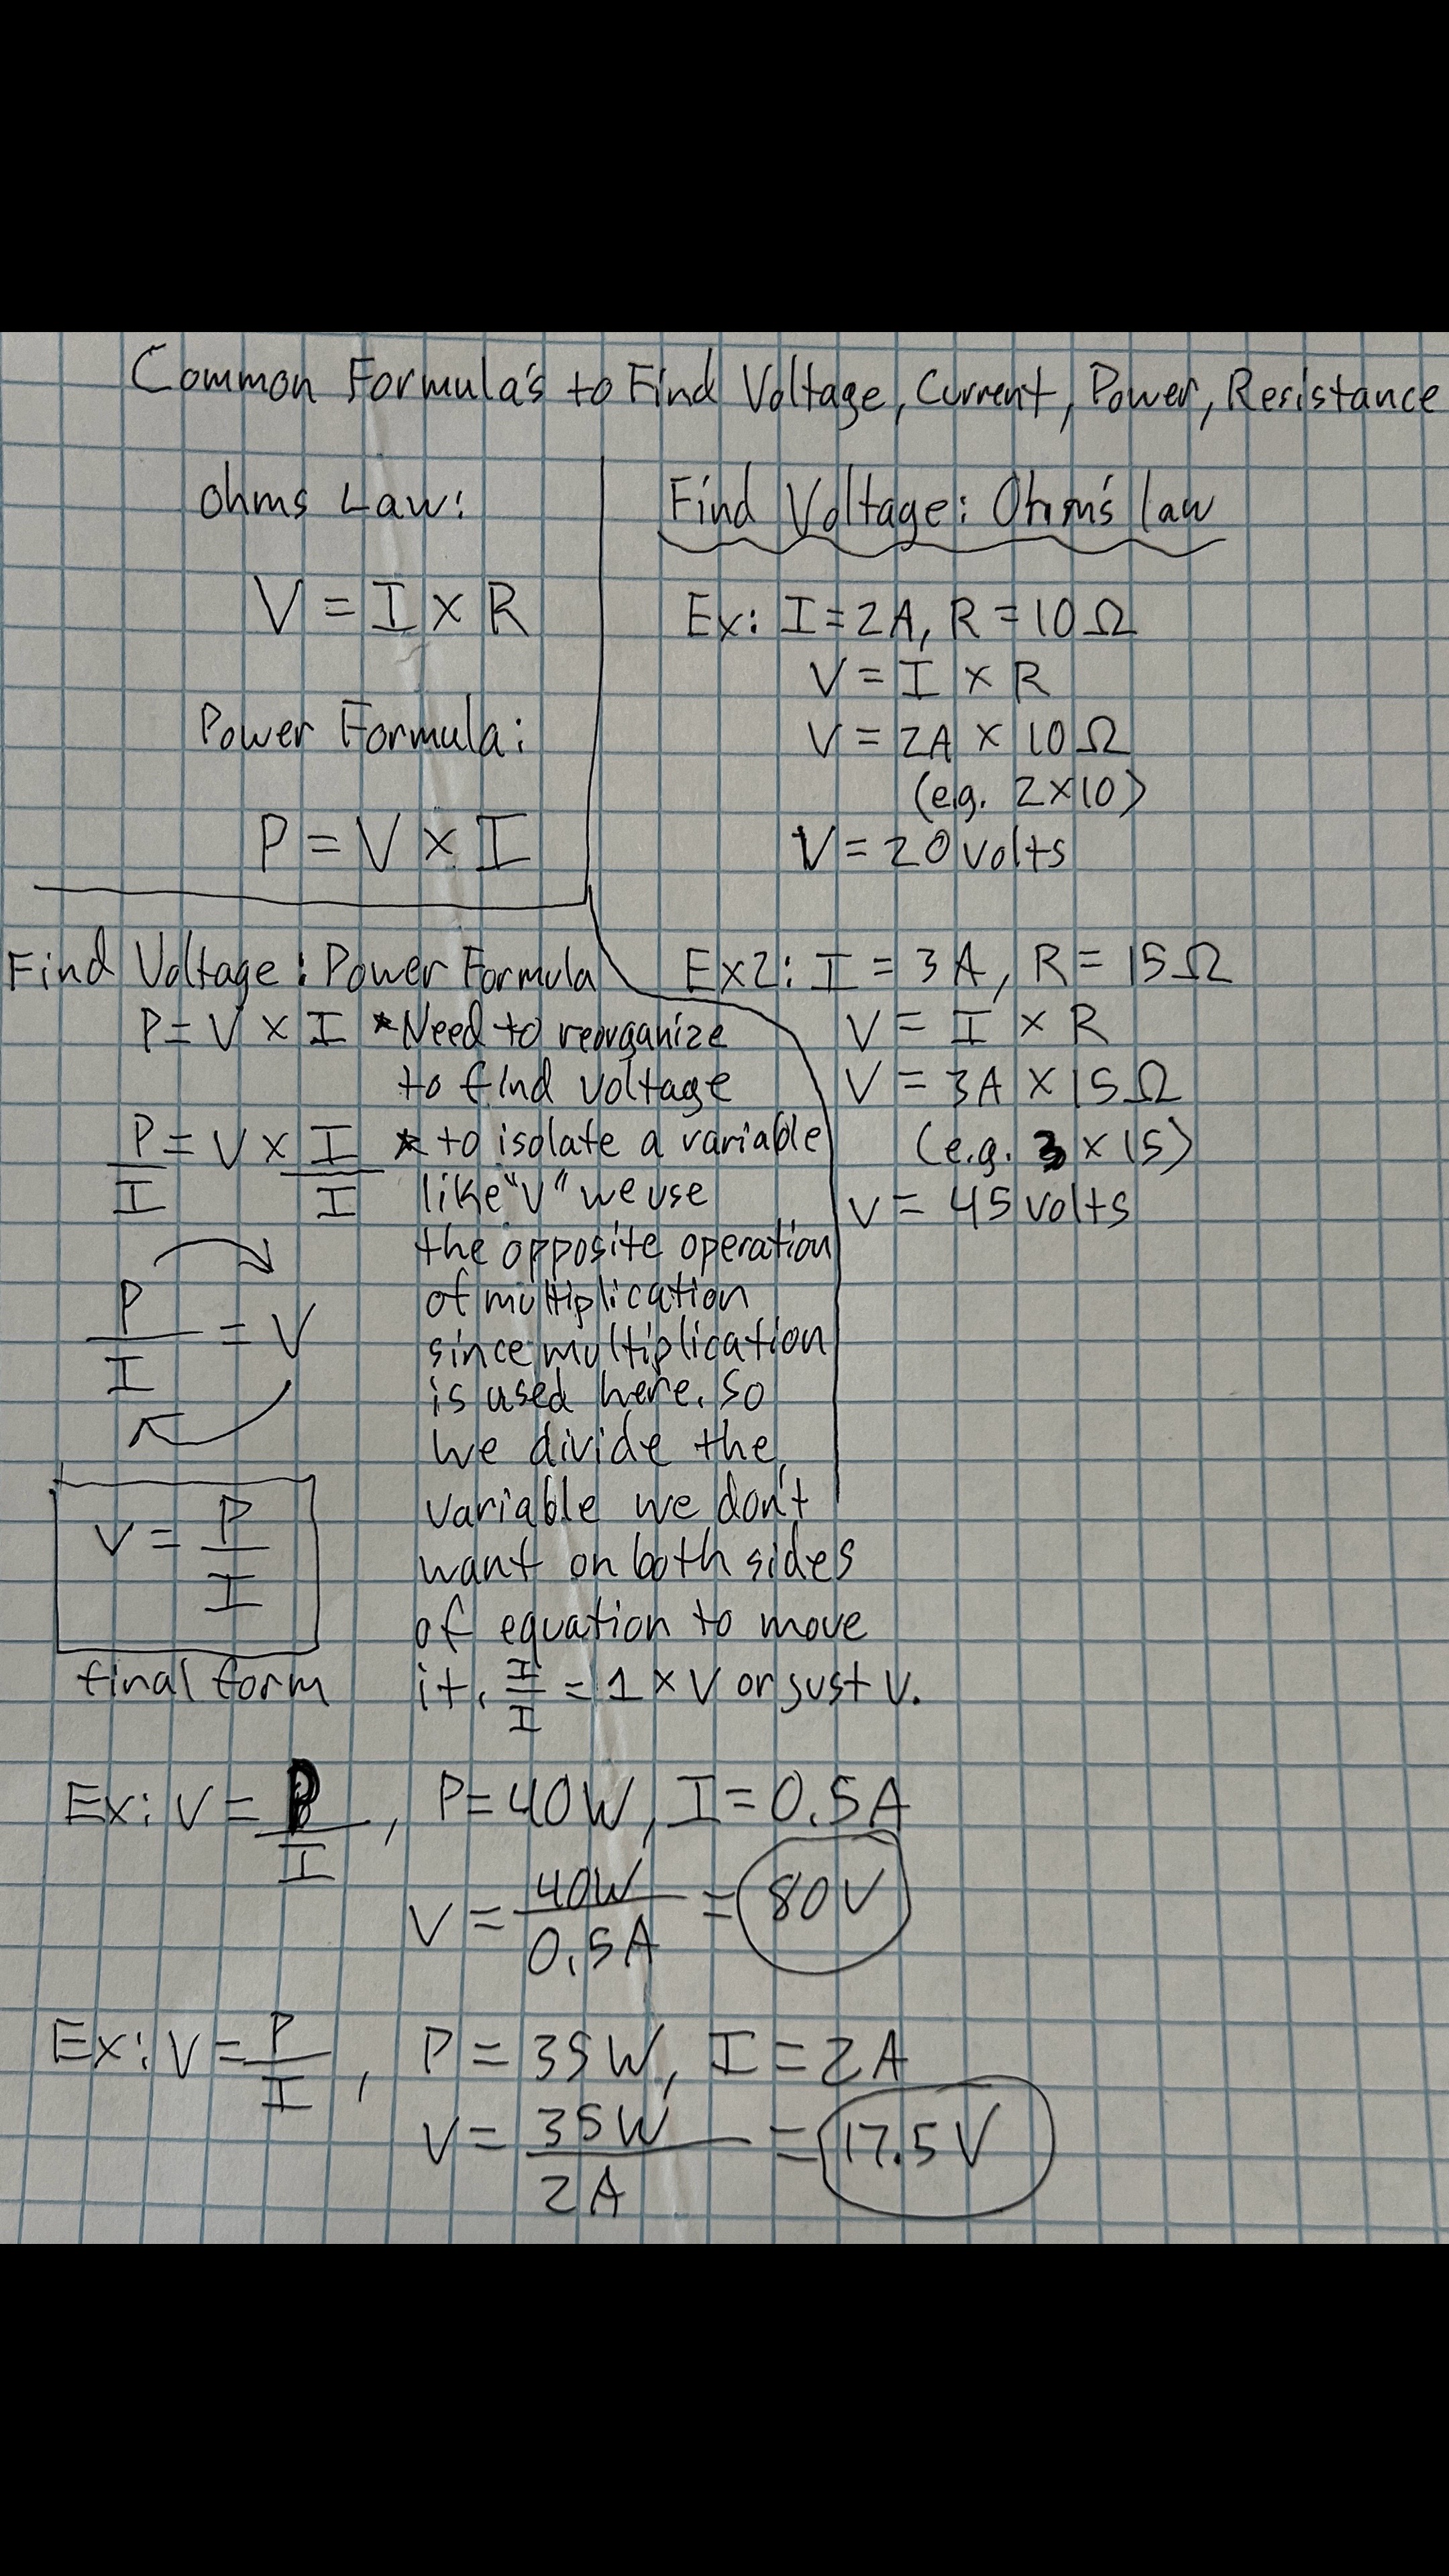 Common Formula's to Find Voltage, Current, Power, Resistance
Ohms Law:
V = I x R
Power Formula:
P = V x I
Find Voltage: Ohm's law
Ex: I = 2A, R = 10Ω
V = I x R
V = 2A x 10Ω
(e.g. 2x10)
V = 20 volts
Ex2: I = 3A, R = 15Ω
V = I x R
V = 3A x 15Ω
(e.g. 3 x 15)
V = 45 volts
Find Voltage: Power Formula
P = V x I *Need to reorganize
to find voltage
P/I = V x I/I * to isolate a variable
like "V" we use
the opposite operation
of multiplication
since multiplication
is used here. So
we divide the
variable we don't
want on both sides
of equation to move
it. I/I = 1 x V or just V.
P/I = V
V = P/I
final form
Ex: V = P/I, P = 40W, I = 0.5A
V = 40W/0.5A = 80V
Ex: V = P/I, P = 35W, I = 2A
V = 35W/2A = 17.5V